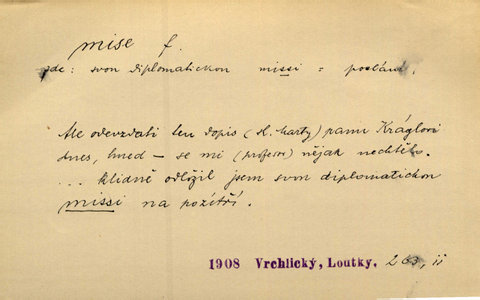 mise f.
zde: svou diplomatickou missi = poslání.
Ale odevzdati ten dopis (sl. Marty) panu Kráglovi
dnes, hned — se mi (profesor) nějak nechtělo.
... klidně odložil jsem svou diplomatickou
missi na pozítří.
1908 Vrchlický, Loutky. 263, ii